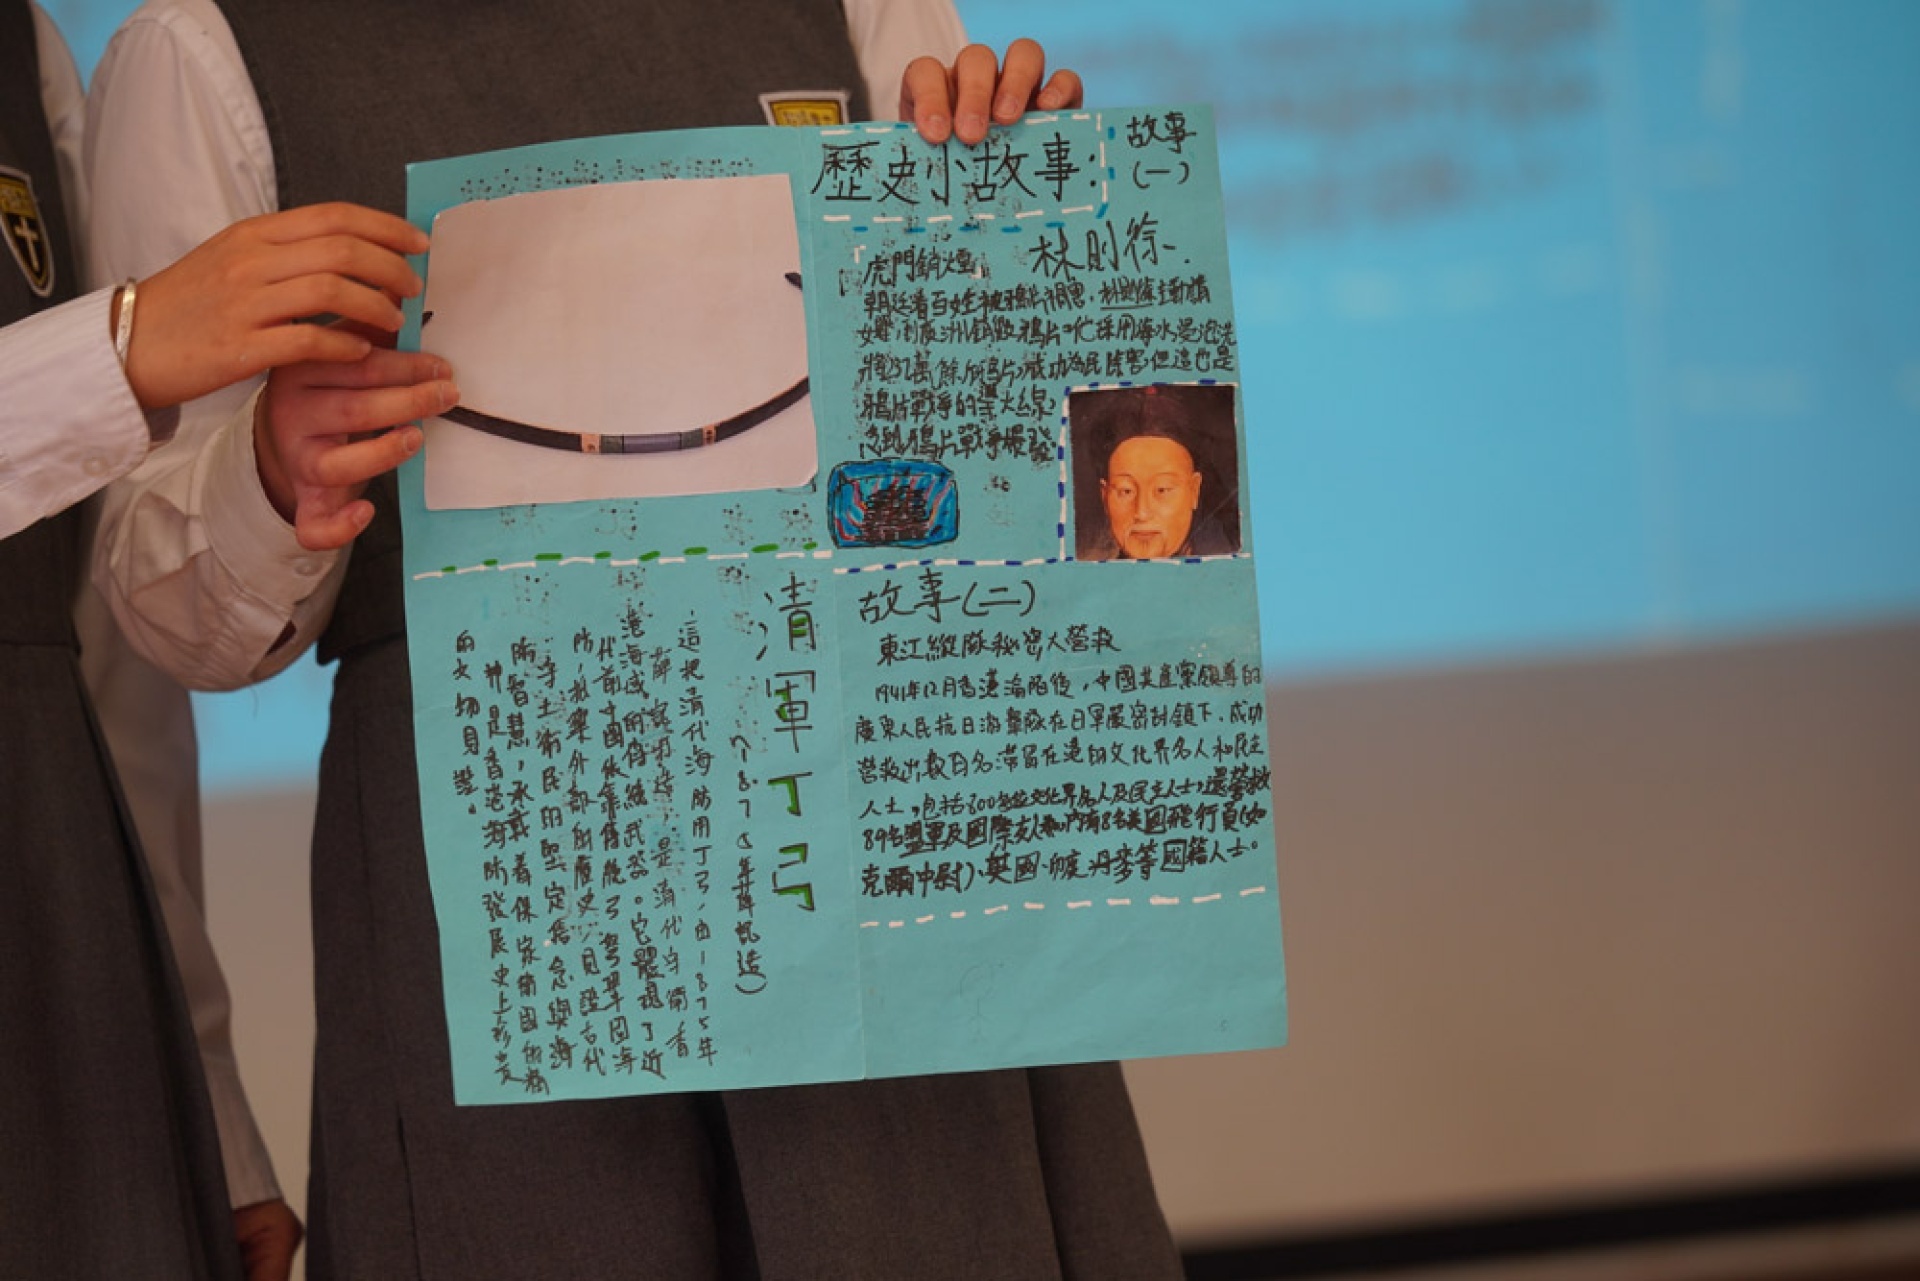 歷史小故事:
故事
(一)
林則徐.
虎門銷煙
朝廷看百姓被鴉片禍害,林則徐主動請
鴉片。他採用海水浸泡法
將237萬餘斤鴉片,成功為民除害但這也是
鴉片戰爭的導火線,
鴉片戰爭爆發
故事(二)
東江縱隊秘密大營救
1941年12月香港淪陷後,中國共產黨領導的
廣東人民抗日游擊隊在日軍嚴密封鎖下,成功
營救出數百名滯留在港的文化界名人和民主
人士,包括300名位文化界名人及民主人士,還營救
89名盟軍及國際友人,內有8名美國飛行員(如
克爾中尉)、英國、印度、丹麥等國籍人士。
清軍丁弓
(1875年薛記造)
這把清代海防用丁弓,由1875年
薛記打造,是清代守衛香
港海域的傳統武器。它體現了近
代前中國依靠傳統弓弩鞏固海
防,抵禦外部的歷史,見證古代
守土衛民的堅定信念與海
防智慧,承載着保家衛國的精
神是香港海防發展史上珍貴
的文物見證。